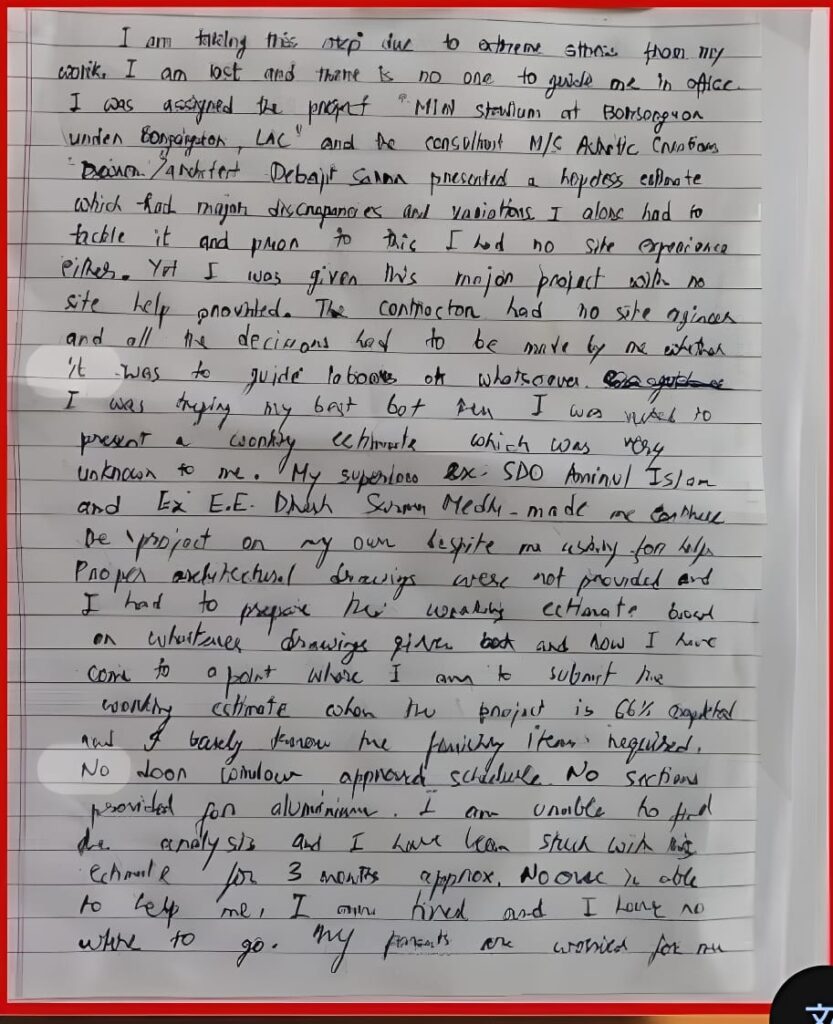 I am taking this step due to extreme stress from my
work. I am lost and there is no one to guide me in office.
I was assigned the project "MINI stadium at Borsongaon
under Bongaigaon, LAC" and the consultant M/S Achetic Creations
architect Debajit Sarma presented a hopeless estimate
which had major discrapancies and variations I alone had to
tackle it and prior to this I had no site experience
either. Yet I was given this major project with no
site help provided. The contractor had no site engineer
and all the decisions had to be made by me whether
it was to guide labours or whatsoever.
I was trying my best but then I was asked to
present a working estimate which was very
unknown to me. My superiors Ex. SDO Aminul Islam
and Ex E.E. Dinesh Sarma Medhi - made me continue
the project on my own despite me asking for help
Proper architectural drawings were not provided and
I had to prepare the working estimate based
on whatever drawings given and now I have
come to a point where I am to submit the
working estimate when the project is 66% completed
and I barely know the finishing items required.
No door window approved schedule. No sections
provided for aluminium. I am unable to find
the analysis and I have been stuck with this
estimate for 3 months approx. No one is able
to help me, I am tired and I have no
where to go. My parents are worried for me